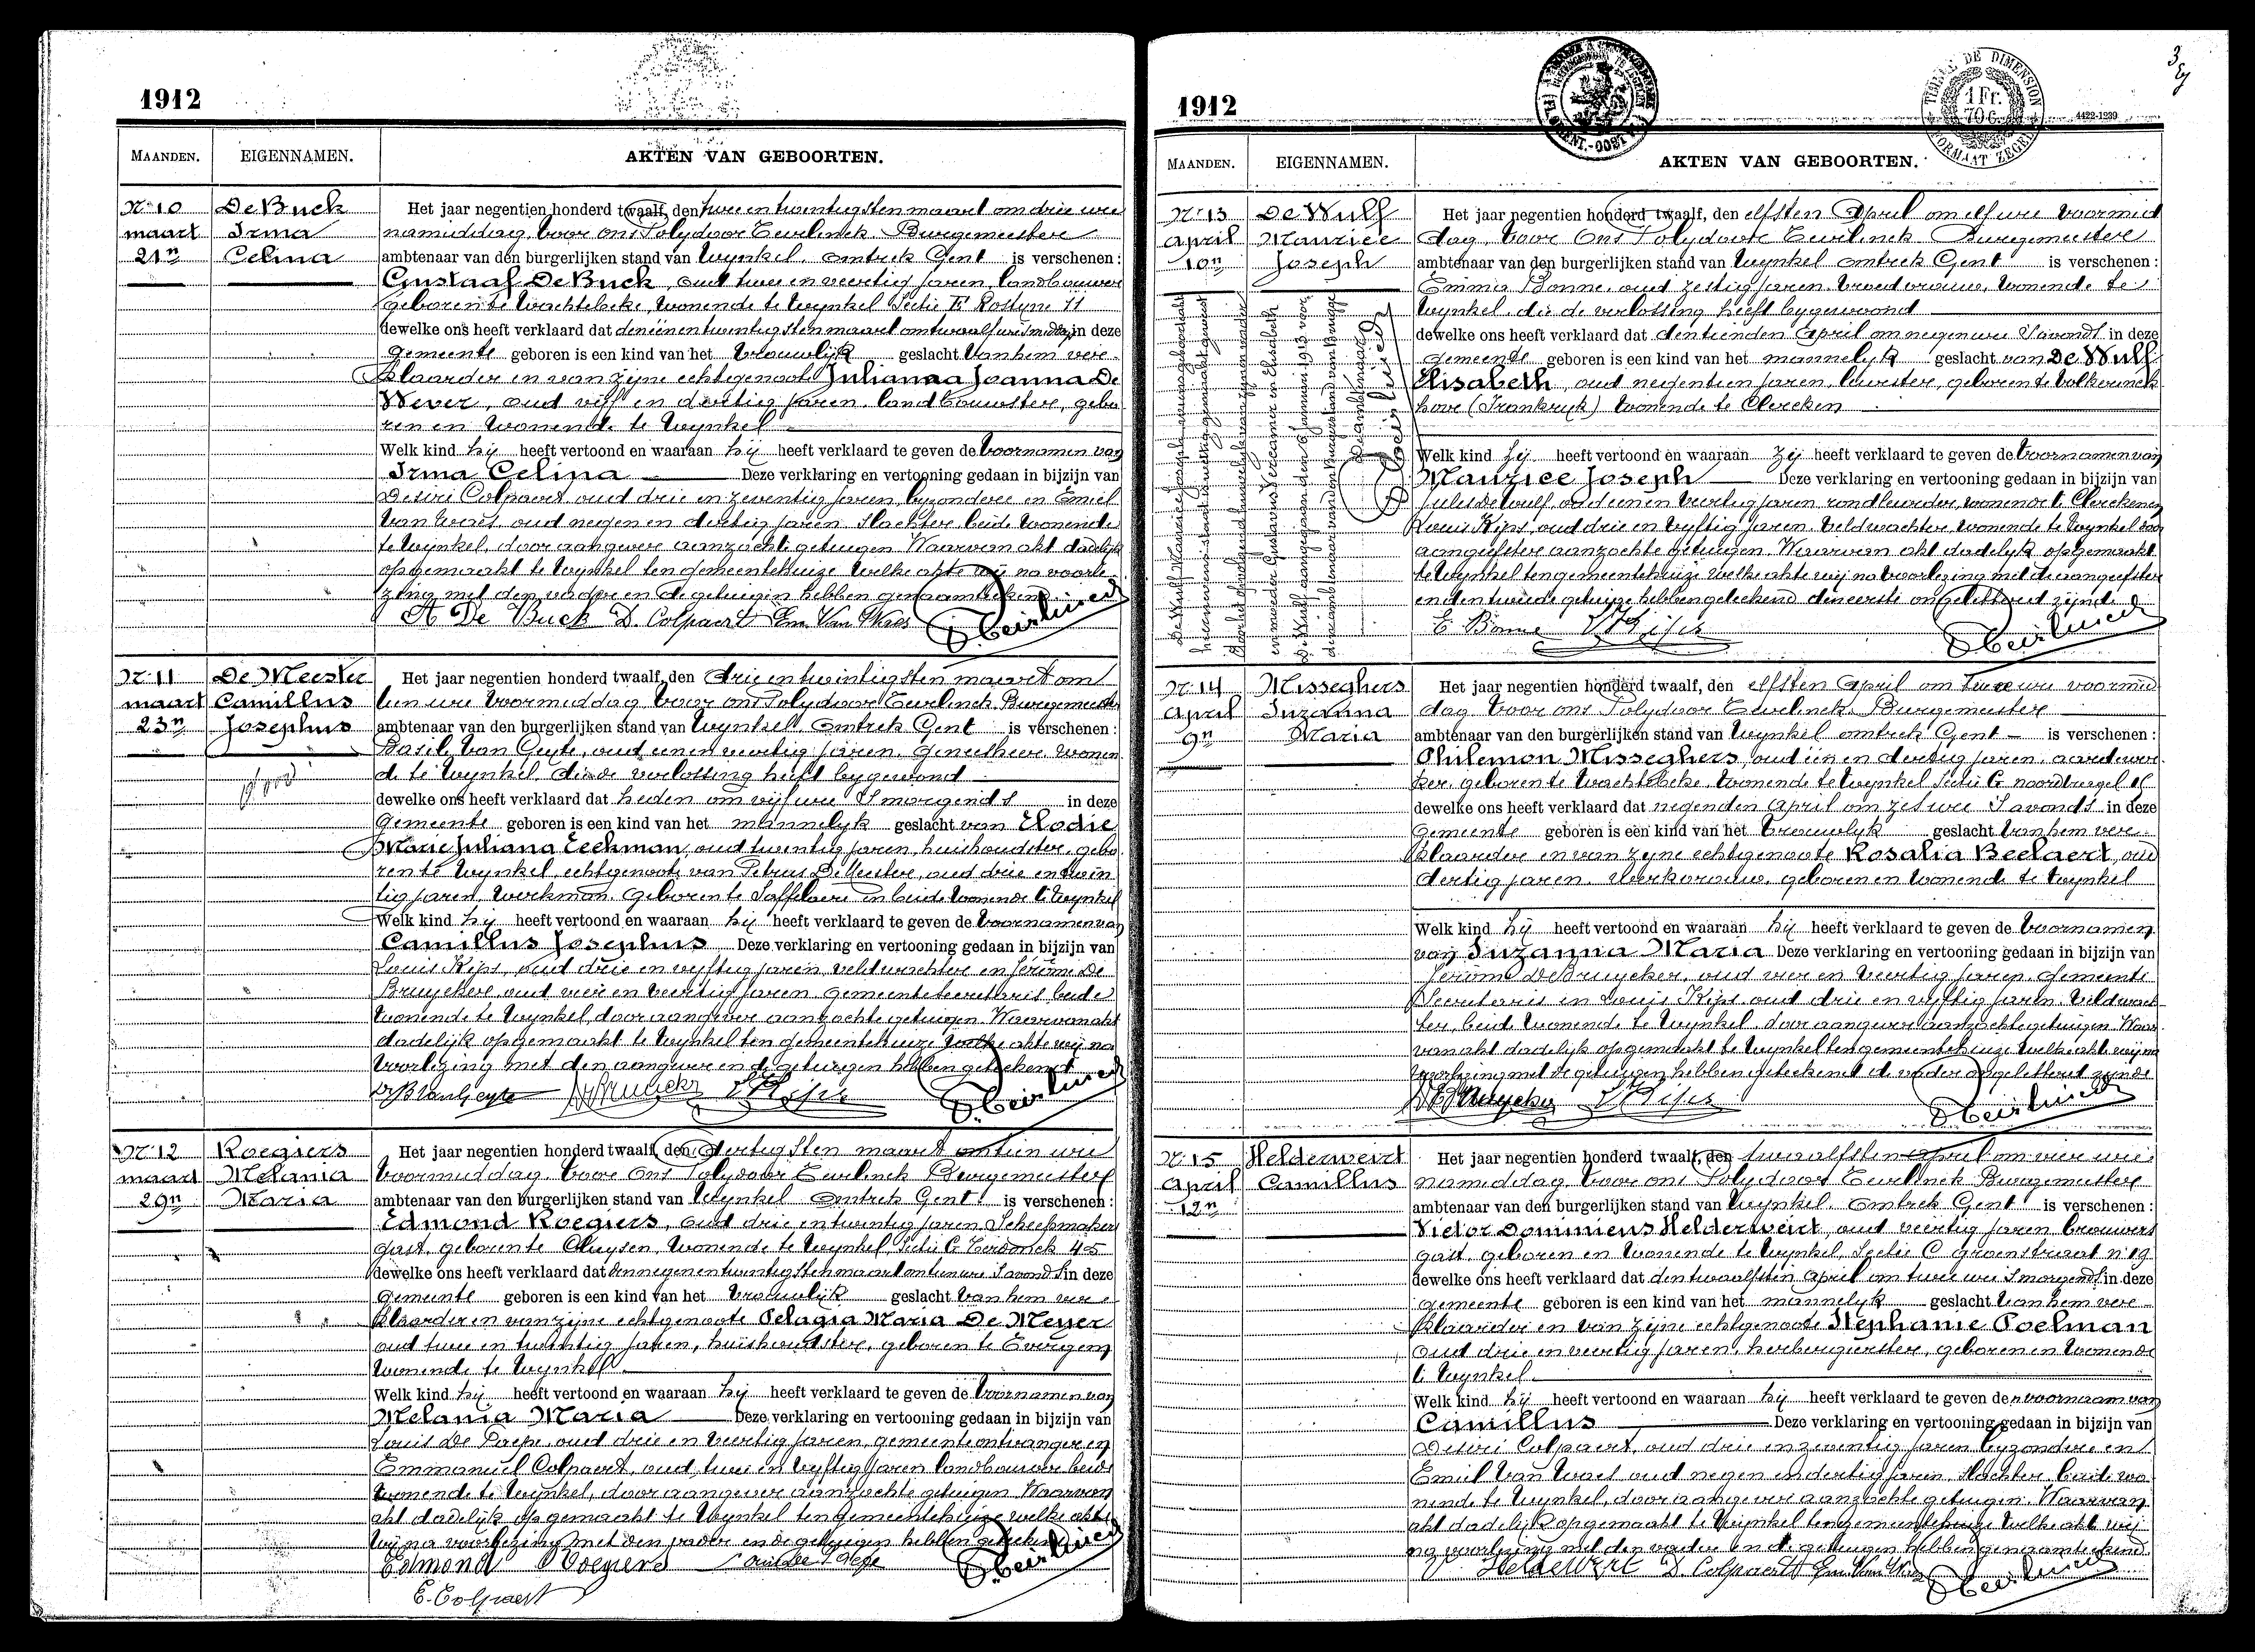 1912
MAANDEN. EIGENNAMEN. AKTEN VAN GEBOORTEN.
No 10
maart
21n
De Buck
Irma
Celina
Het jaar negentien honderd twaalf, den twee en twintigsten maart om drie ure
namiddag, voor ons Polydoor Teirlinck Burgemeester
ambtenaar van den burgerlijken stand van Wynkel, omtrek Gent is verschenen:
Gustaaf De Buck, oud twee en veertig jaren, landbouwer
geboren te Wachtebeke, wonende te Wynkel Sectie E Rostyne 11
dewelke ons heeft verklaard dat den een en twintigsten maart om twaalf ure smiddags in deze
gemeente geboren is een kind van het vrouwlijk geslacht van hem ver-
klaarder en van zijne echtgenoote Julianna Joanna De
Wever, oud vijf en dertig jaren, landbouwster, gebo
ren en wonende te Wynkel
Welk kind hij heeft vertoond en waaraan hij heeft verklaard te geven de voornamen van
Irma Celina Deze verklaring en vertooning gedaan in bijzijn van
Desiré Colpaert, oud drie en zeventig jaren, byzondere en Emiel
Van Waes, oud negen en dertig jaren, slachter, beide wonende
te Wynkel, door aangever aanzochte getuigen. Waarvan akt dadelijk
opgemaakt te Wynkel ten gemeentehuize welke akte wij na voorle-
zing met den vader en de getuigen hebben genaamteekend.
A De Buck D. Colpaert Em. Van Waes P. Teirlinck
No 11
maart
23n
De Meester
Camillus
Josephus
Het jaar negentien honderd twaalf, den drie en twintigsten maart om
tien ure voormiddag voor ons Polydoor Teirlinck Burgemeester
ambtenaar van den burgerlijken stand van Wynkel omtrek Gent is verschenen:
Basile Van Geyte, oud een en veertig jaren, geneesheer, wonen
de te Wynkel, die de verlossing heeft bygewoond
dewelke ons heeft verklaard dat heden om vijf ure smorgends in deze
gemeente geboren is een kind van het mannelyk geslacht van Elodie
Marie Juliana Eeckman, oud twintig jaren, huishoudster, gebo
ren te Wynkel, echtgenoote van Petrus De Meester, oud drie en twin
tig jaren, werkman, geboren te Saffelaere en beide wonende te Wynkel
Welk kind hij heeft vertoond en waaraan hij heeft verklaard te geven de voornamen van
Camillus Josephus Deze verklaring en vertooning gedaan in bijzijn van
Louis Kips, oud drie en vyftig jaren, veldwachter en Jérôme De
Bruyckere, oud vier en veertig jaren gemeentesecretaris beide
wonende te Wynkel, door aangever aanzochte getuigen. Waarvan akt
dadelijk opgemaakt te Wynkel ten gemeentehuize welke akte wij na
voorlezing met den aangever en de getuigen hebben geteekend
Dr B Van Geyte DeBruycker L Kips P. Teirlinck
No 12
maart
29n
Roegiers
Melania
Maria
Het jaar negentien honderd twaalf, den dertigsten maart om tien ure
voormiddag, voor ons Polydoor Teirlinck Burgemeester
ambtenaar van den burgerlijken stand van Wynkel omtrek Gent is verschenen:
Edmond Roegiers, oud drie en twintig jaren, Scheepmaker
gast, geboren te Cluysen, wonende te Wynkel, Sectie C Terdonck 45
dewelke ons heeft verklaard dat den negen en twintigsten maart om tien ure savonds in deze
gemeente geboren is een kind van het vrouwlijk geslacht van hem ver-
klaarder en van zijne echtgenoote Pelagia Maria De Meyer
oud twee en twintig jaren, huishoudster, geboren te Evergem
wonende te Wynkel
Welk kind hij heeft vertoond en waaraan hij heeft verklaard te geven de voornamen van
Melania Maria Deze verklaring en vertooning gedaan in bijzijn van
Louis De Paepe, oud drie en veertig jaren, gemeenteontvanger en
Emmanuel Colpaert, oud twee en vyftig jaren landbouwer beide
wonende te Wynkel, door aangever aanzochte getuigen. Waarvan
akt dadelijk opgemaakt te Wynkel ten gemeentehuize welke akte
wij na voorlezing met den vader en de getuigen hebben geteekend
Edmond Roegiers Louis De Paepe P. Teirlinck
E. Colpaert
3
1912
TIMBRE DE DIMENSION
1 Fr.
70 C.
FORMAAT ZEGEL
4422-1239
MAANDEN. EIGENNAMEN. AKTEN VAN GEBOORTEN.
No 13
april
10n
De Wulf
Maurice
Joseph
Het jaar negentien honderd twaalf, den elfsten April om elf ure voormid
dag, voor Ons Polydoor Teirlinck Burgemeester
ambtenaar van den burgerlijken stand van Wynkel omtrek Gent is verschenen:
Emma Bonne, oud zestig jaren, vroedvrouw, wonende te
Wynkel, die de verlossing heeft bygewoond
dewelke ons heeft verklaard dat den tienden April om negen ure Savonds in deze
gemeente geboren is een kind van het mannelyk geslacht van De Wulf
Elisabeth, oud negentien jaren, leurster, geboren te Volkerinck
hove (Frankryk) wonende te Clercken
Welk kind zij heeft vertoond en waaraan zij heeft verklaard te geven de voornamen van
Maurice Joseph Deze verklaring en vertooning gedaan in bijzijn van
Jules De Wulf, oud een en veertig jaren rondleurder, wonende te Clercken en
Louis Kips, oud drie en vyftig jaren, veldwachter, wonende te Wynkel door
aangeefster aanzochte getuigen. Waarvan akt dadelyk opgemaakt
te Wynkel ten gemeentehuize welke akte wij na voorlezing met de aangeefster
en den tweede getuige hebben geteekend den eerste ongeletterd zijnde
E. Bonne L Kips P. Teirlinck
No 14
april
9n
Misseghers
Suzanna
Maria
Het jaar negentien honderd twaalf, den elfsten April om twee ure voormid
dag voor ons Polydoor Teirlinck Burgemeester
ambtenaar van den burgerlijken stand van Wynkel omtrek Gent is verschenen:
Philemon Misseghers, oud een en dertig jaren, aardewer
ker, geboren te Wachtebeke, wonende te Wynkel Sectie G
dewelke ons heeft verklaard dat negenden April om zes ure Savonds in deze
gemeente geboren is een kind van het vrouwlyk geslacht van hem ver-
klaarder en van zyne echtgenoote Rosalia Beelaert, oud
dertig jaren, werkvrouw, geboren en wonende te Wynkel
Welk kind hij heeft vertoond en waaraan hij heeft verklaard te geven de voornamen
van Suzanna Maria Deze verklaring en vertooning gedaan in bijzijn van
Jérôme De Bruycker, oud vier en veertig jaren, gemeente
Secretaris en Louis Kips oud drie en vyftig jaren, veldwach-
ter, beide wonende te Wynkel, door aangever aanzochte getuigen. Waar
van akt dadelyk opgemaakt te Wynkel ten gemeentehuize welke akt wij na
voorlezing met de getuigen hebben geteekend de vader ongeletterd zynde
DeBruycker L Kips P. Teirlinck
No 15
april
12n
Helderweirt
Camillus
Het jaar negentien honderd twaalf, den twaalfsten april om vier ure
namiddag, voor ons Polydoor Teirlinck Burgemeester
ambtenaar van den burgerlijken stand van Wynkel, omtrek Gent is verschenen:
Victor Dominicus Helderweirt, oud veertig jaren brouwers
gast, geboren en wonende te Wynkel, Sectie C groenstraat n 19
dewelke ons heeft verklaard dat den twaalfsten April om twee ure smorgends in deze
gemeente geboren is een kind van het mannelyk geslacht van hem ver-
klaarder en van zyne echtgenoote Stephanie Poelman
oud drie en veertig jaren, herbergierster, geboren en wonende
te Wynkel
Welk kind hij heeft vertoond en waaraan hij heeft verklaard te geven den voornaam van
Camillus Deze verklaring en vertooning gedaan in bijzijn van
Desiré Colpaert, oud drie en zeventig jaren byzondere en
Emiel Van Waes oud negen en dertig jaren, slachter, beide wo
nende te Wynkel, door aangever aanzochte getuigen. Waarvan
akt dadelyk opgemaakt te Wynkel ten gemeentehuize welke akt wij
na voorlezing met den vader en de getuigen hebben genaamteekend.
Heldewert D. Colpaert Em. Van Waes P. Teirlinck